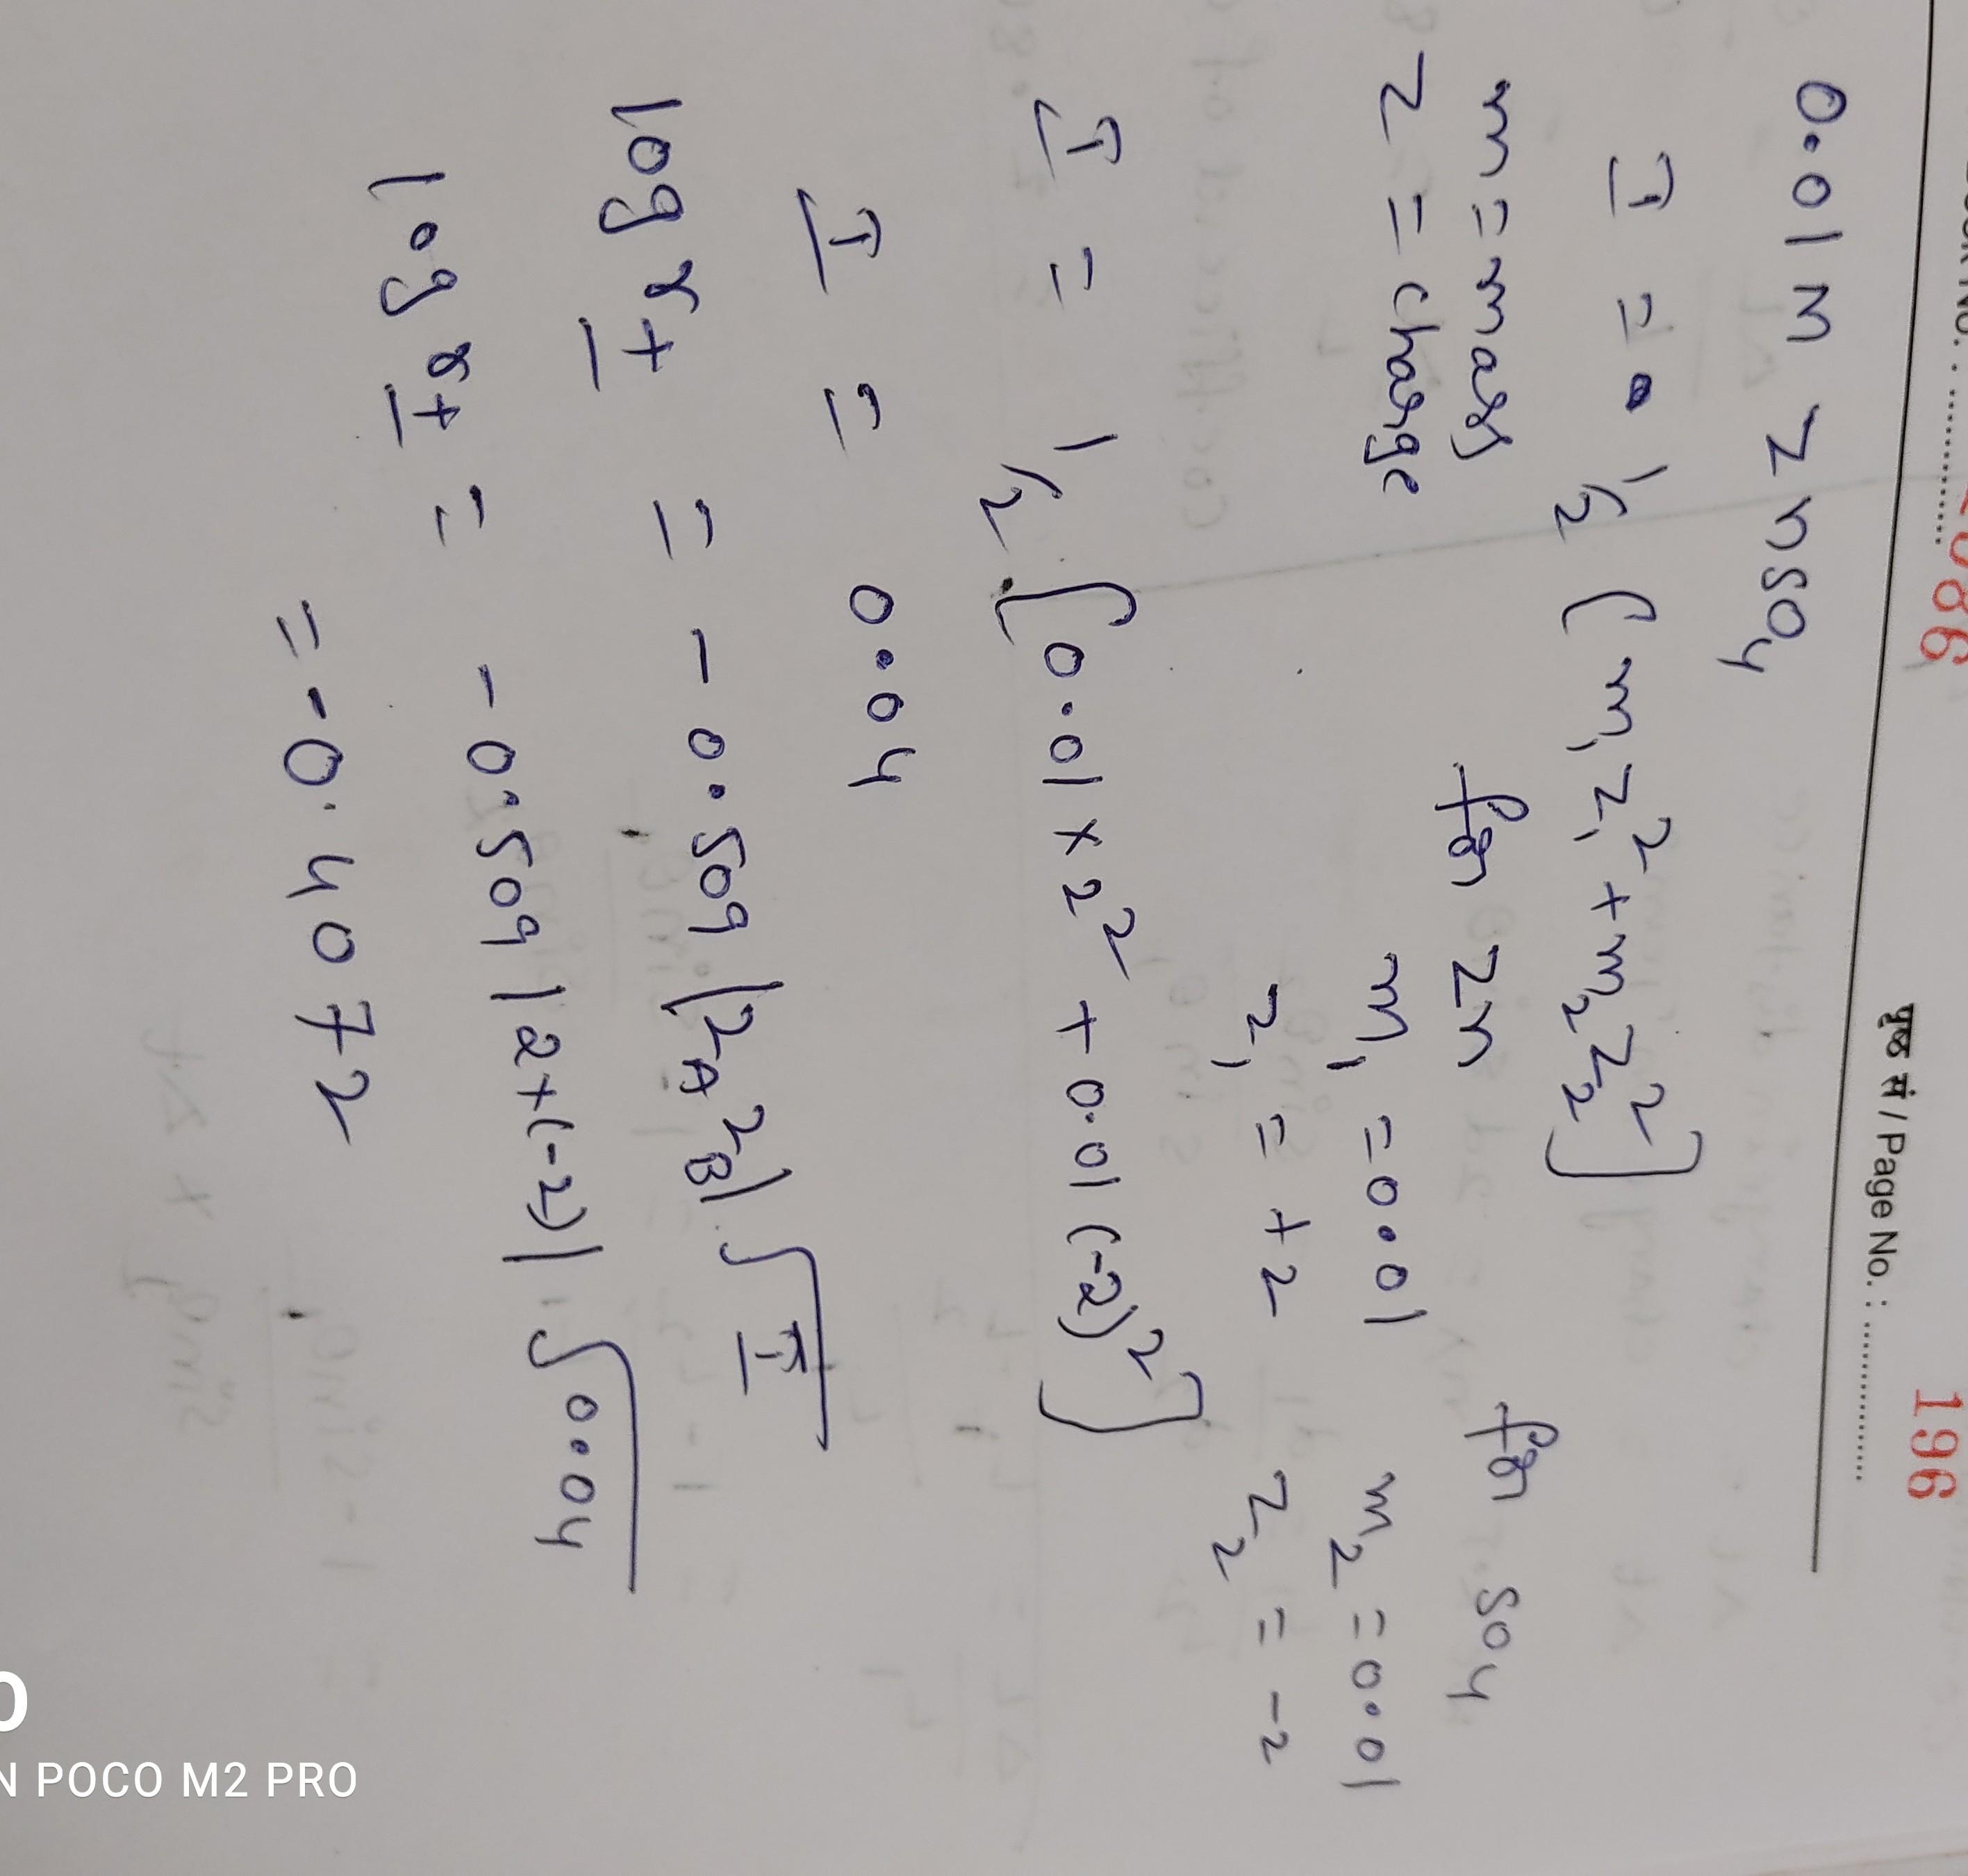 पृष्ठ सं / Page No. : ..............
196
0.01M ZnSO4
I = 1/2 [m1z1² + m2z2²]
m = mass
z = charge
for Zn
for SO4
m1 = 0.01
m2 = 0.01
z1 = +2
z2 = -2
I = 1/2 [0.01 × 2² + 0.01 (-2)²]
I = 0.04
log γ± = -0.509 |ZA ZB| √I
log γ± = -0.509 |2×(-2)| √0.04
= -0.4072
POCO M2 PRO